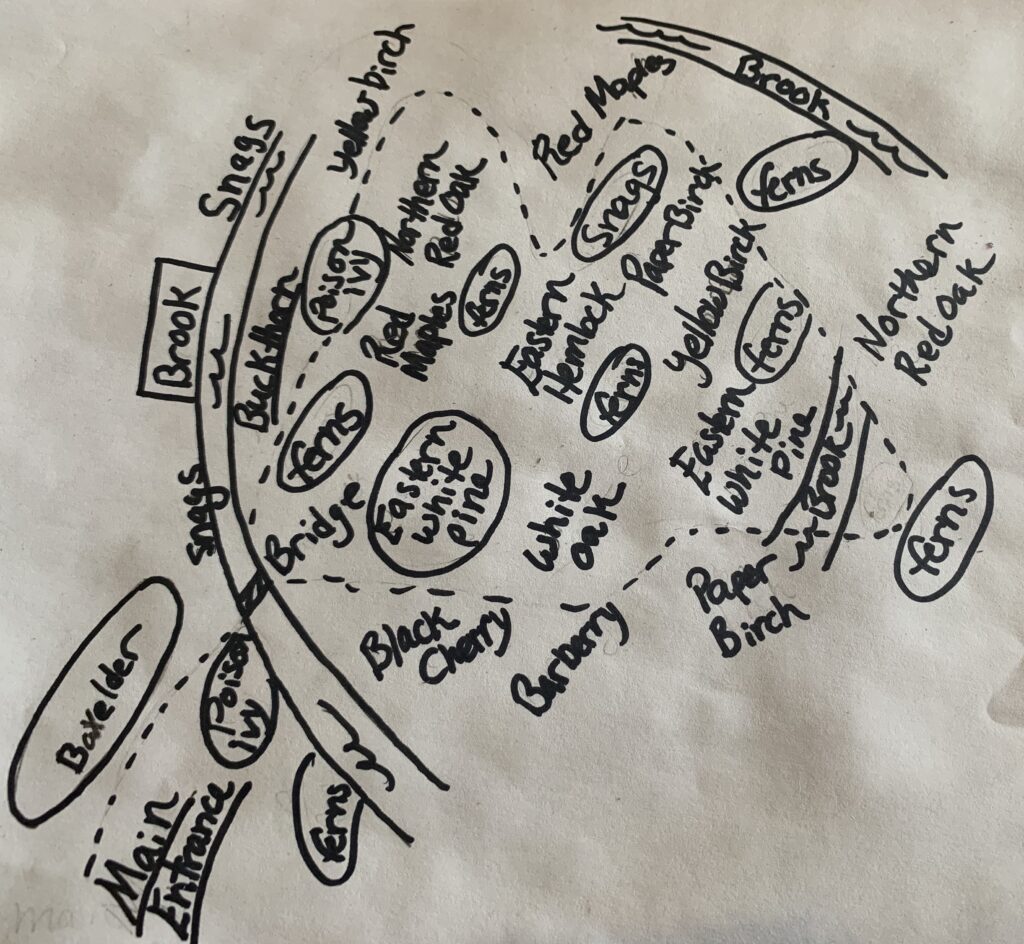 yellow birch
Brook
Red Maples
Snags
ferns
Snags
Northern
Red Oak
Poison
ivy
Paper Birch
Yellow Birch
Brook
Buckthorn
Red
Maples
ferns
Eastern
Hemlock
ferns
Northern
Red Oak
ferns
ferns
Eastern
White
pine
Eastern
White
Pine
Brook
snags
Bridge
White
Oak
ferns
Black
Cherry
Barberry
Paper
Birch
Boxelder
Poison
ivy
ferns
Main
Entrance